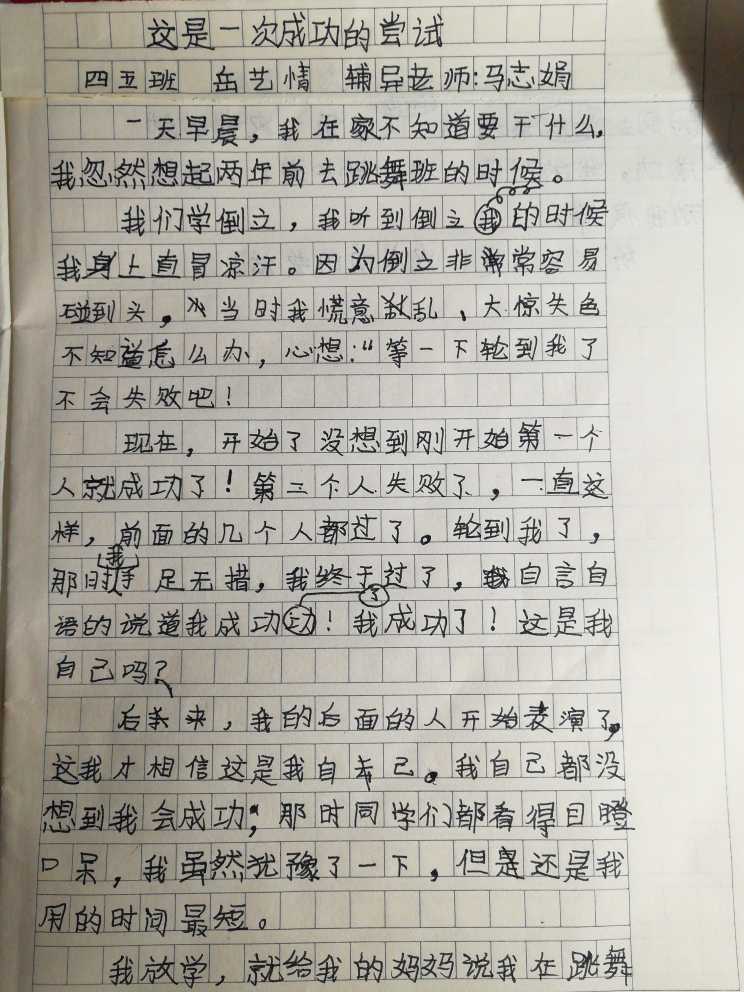 这是一次成功的尝试
四五班 岳艺情 辅导老师:马志娟
一天早晨，我在家不知道要干什么，
我忽然想起两年前去跳舞班的时候。
我们学倒立，我听到倒立我的时候
我身上直冒凉汗。因为倒立非常常容易
碰到头，当时我慌意敌乱、大惊失色
不知道怎么办，心想：“等一下轮到我了
不会失败吧！
现在，开始了没想到刚开始第一个
人就成功了！第二个人失败了，一直这
样，前面的几个人都过了。轮到我了，
那时我手足无措，我终于过了，我自言自
语的说道我成功了！我成功了！这是我
自己吗？
后来，我的后面的人开始表演了，
这我才相信这是我自己。我自己都没
想到我会成功，那时同学们都看得目瞪
口呆，我虽然犹豫了一下，但是还是我
用的时间最短。
我放学，就给我的妈妈说我在跳舞